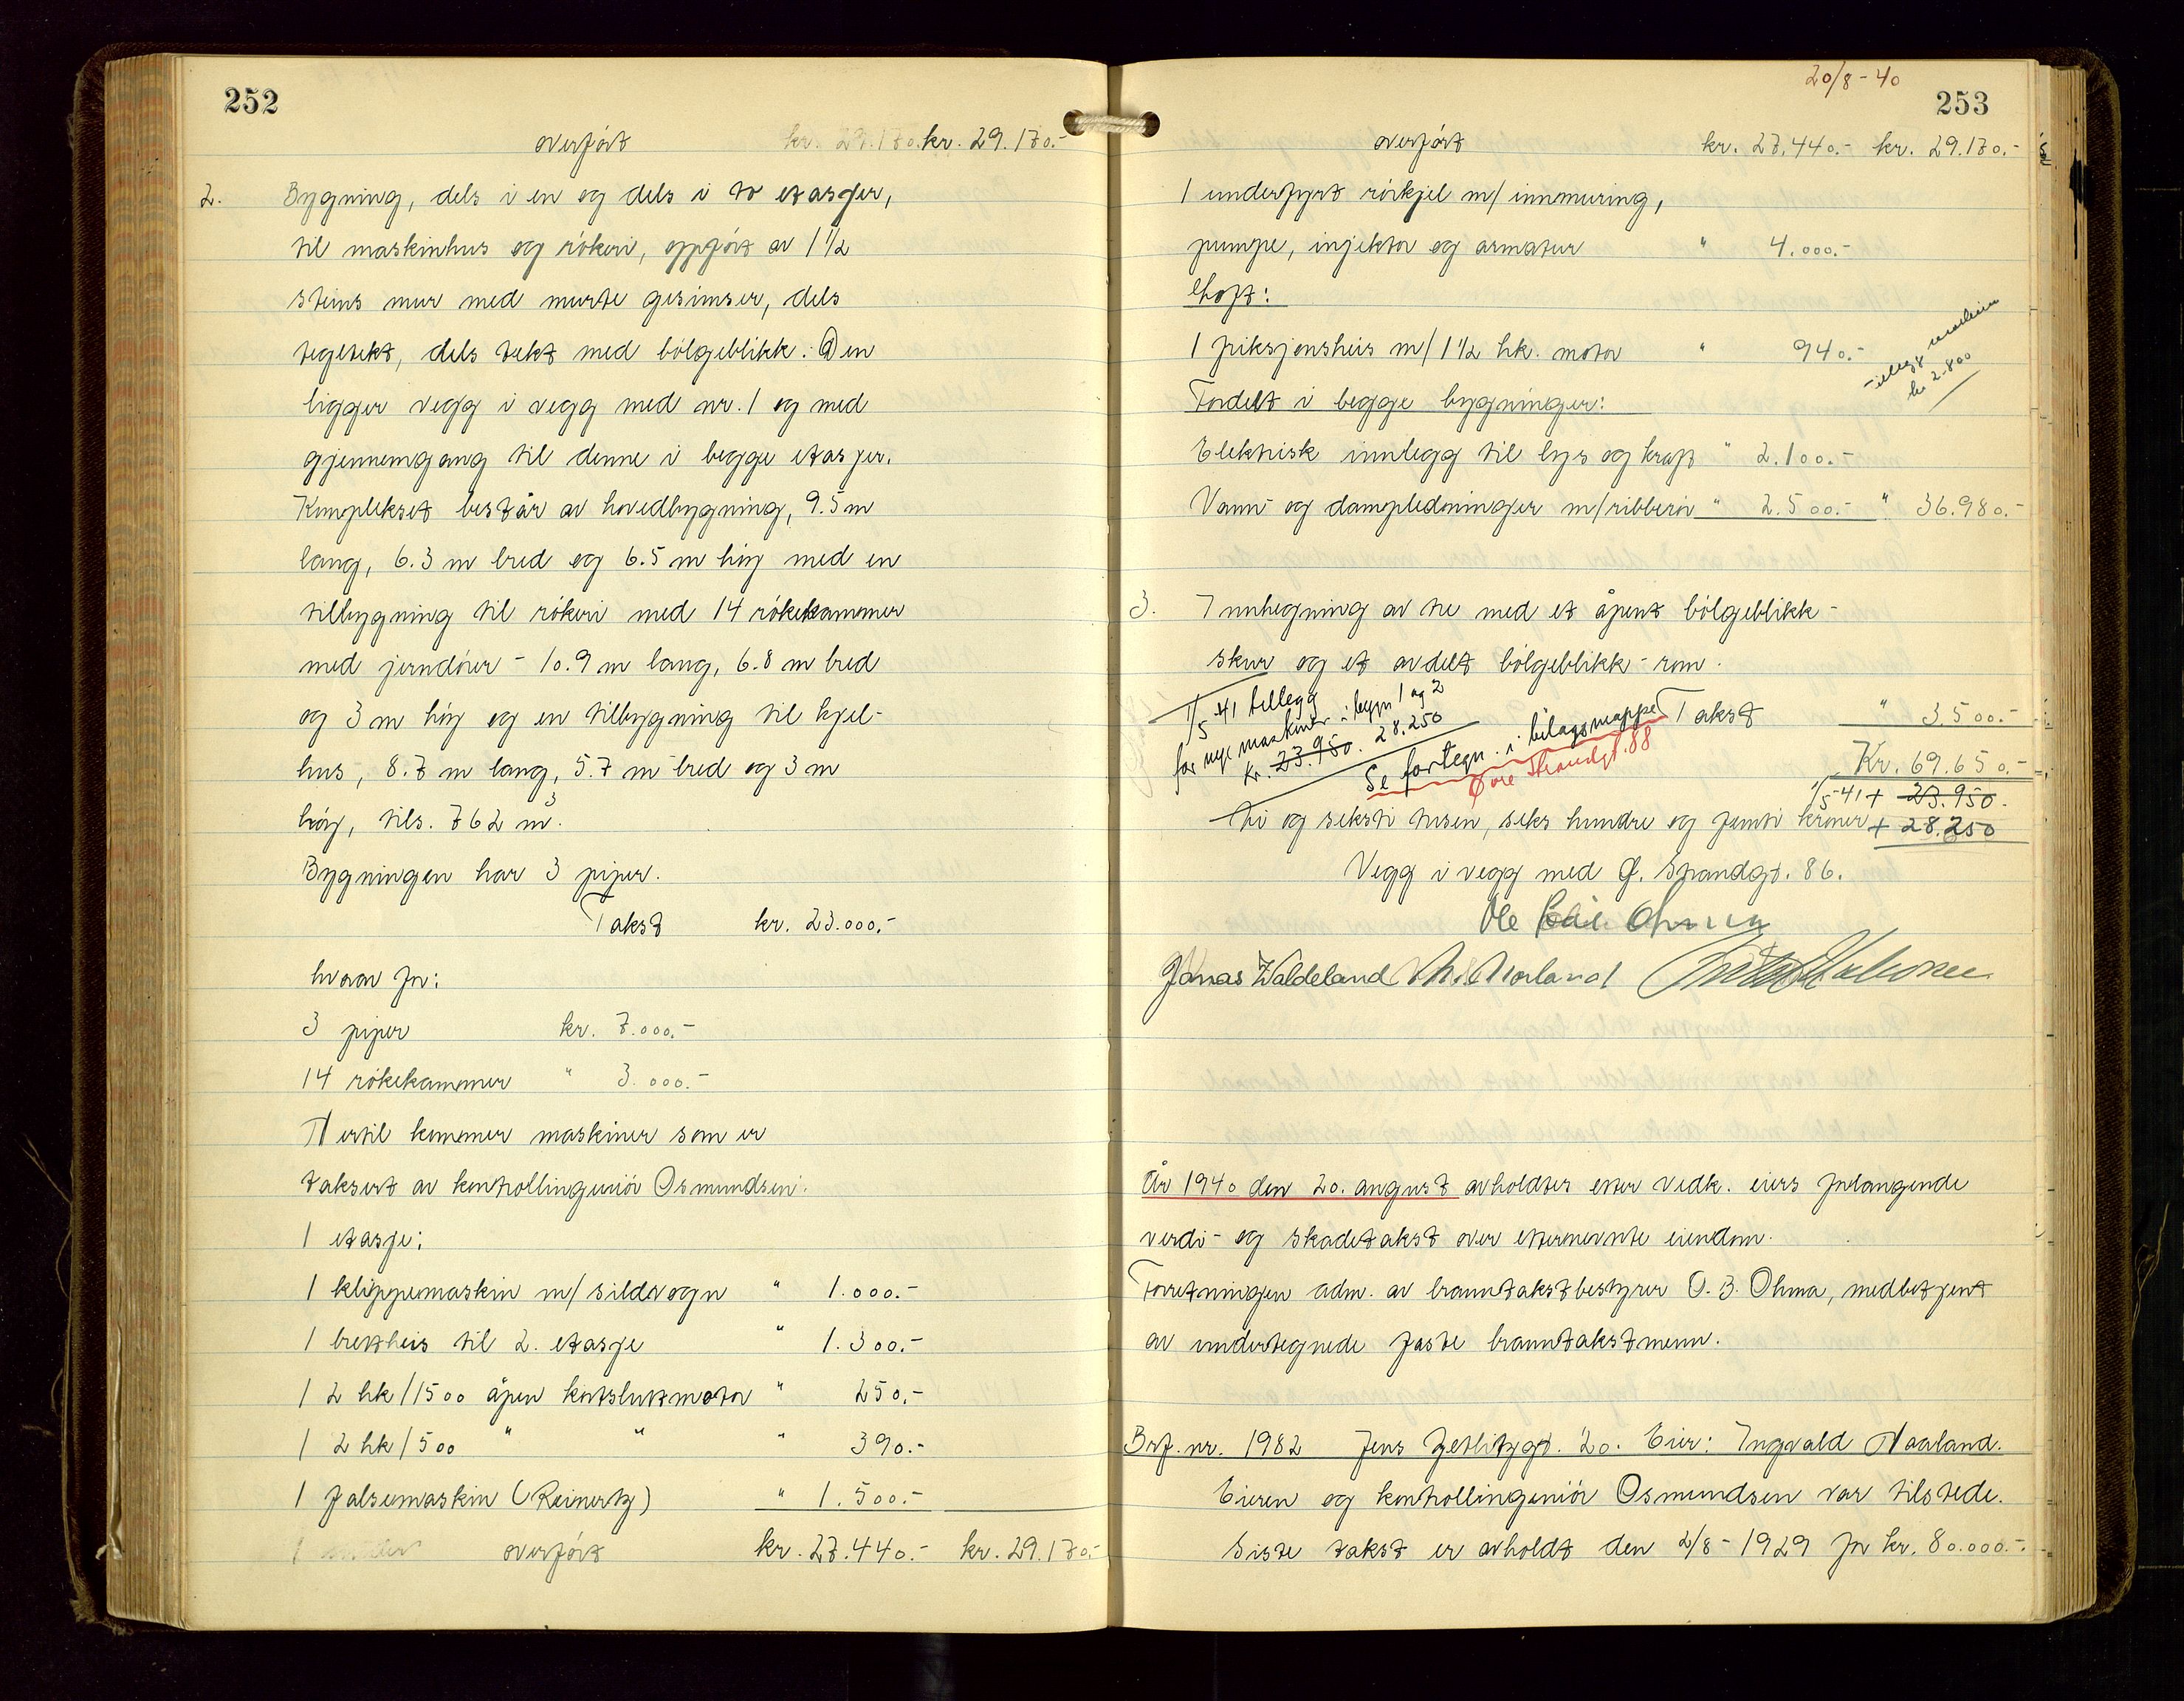 252
overført kr. 29.170.- kr. 29.170.-
2. Bygning, dels i en og dels i to etasjer,
til maskinhus og røkeri, oppført av 1 1/2
steins mur med murte gesimser, dels
tegltekt, dels tekt med bølgeblikk. Den
ligger vegg i vegg med nr. 1 og med
gjennemgang til denne i begge etasjer.
Komplekset består av hovedbygning, 9.5 m
lang, 6.3 m bred og 6.5 m høy med en
tilbygning til røkeri med 14 røkekammer
med jerndører - 10.9 m lang, 6.8 m bred
og 3 m høy og en tilbygning til kjel-
hus, 8.7 m lang, 5.7 m bred og 3 m
høy, tils. 762 m³.
Bygningen har 3 piper.
Takst kr. 23.000.-
hvorav for:
3 piper kr. 7.000.-
14 røkekammer " 3.000.-
Hertil kommer maskiner som er
taksert av kontrollingeniør Osmundsen:
1 etasje:
1 klippemaskin m/ sildvogn " 1.000.-
1 brettheis til 2. etasje " 1.300.-
1 2 hk/1500 åpen kortsluttmotor " 250.-
1 2 hk/500 " " " 390.-
1 falsemaskin (Reinertz) " 1.500.-
overført kr. 27.440.- kr. 29.170.-
20/8-40
253
overført kr. 27.440.- kr. 29.170.-
1 underfyrt rørkjel m/ innmuring,
pumpe, injektor og armatur " 4.000.-
Loft:
1 friksjonsheis m/ 1 1/2 hk. motor " 940.-
tillegg maskiner
kr 2.800
Fordelt i begge bygninger:
Elektrisk innlegg til lys og kraft " 2.100.-
Vann- og dampledninger m/ribberør " 2.500.- " 36.980.-
3. Innhegning av tre med et åpent bølgeblikk-
skur og et avdelt bølgeblikk-rom.
1/5-41 tillegg
for nye maskiner i bygn 1 og 2
kr. 23.950. 28.250
Se fortegn. i bilagsmappe
Øvre Strandgt. 88
Takst " 3.500.-
Kr. 69.650.-
1/5-41 + 23.950.
+ 28.250
Ni og seksti tusen, seks hundre og femti kroner
Vegg i vegg med Ø. Strandgt. 86.
Ole Ohma
Jonas Waldeland
År 1940 den 20. august avholdtes etter vedk. eiers forlangende
verdi- og skadetakst over etternevnte eiendom.
Forretningen adm. av branntakstbestyrer O. B. Ohma, medbetjent
av undertegnede faste branntakstmenn.
Brf. nr. 1982 Jens Zetlitzgt. 20. Eier: Ingvald Haaland.
Eieren og kontrollingeniør Osmundsen var tilstede.
Siste takst er avholdt den 2/8-1929 for kr. 80.000.-.